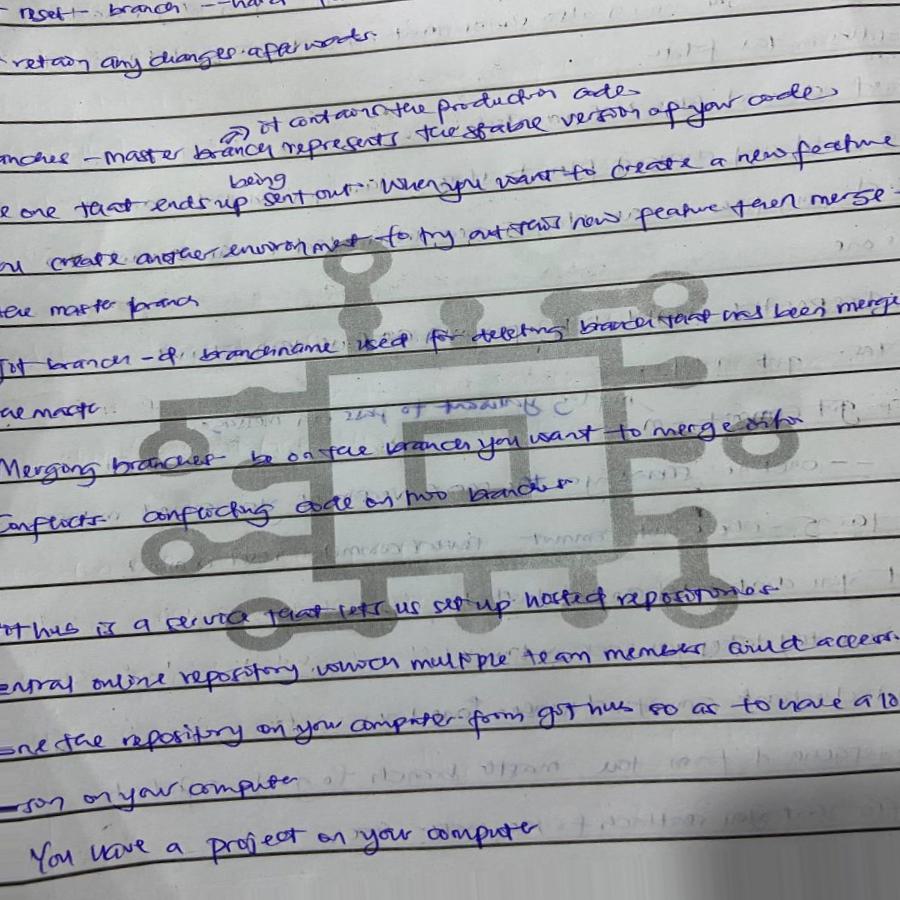 reset - branch --hard
retain any changes afterwards.
it contains the production code.
anches - master branch represents the stable version of your code,
being
e one that ends up sent out. When you want to create a new feature
ou create another environment to try out this new feature then merge
the master branch
git branch -d branchname used for deleting branch that has been merge
he master
Merging branches - be on the branch you want to merge into
Conflicts conflicting code on two branches
ithub is a service that lets us set up hosted repositories
entral online repository which multiple team members access
one the repository on your computer from github so as to have a lo
son on your computer
You have a project on your computer